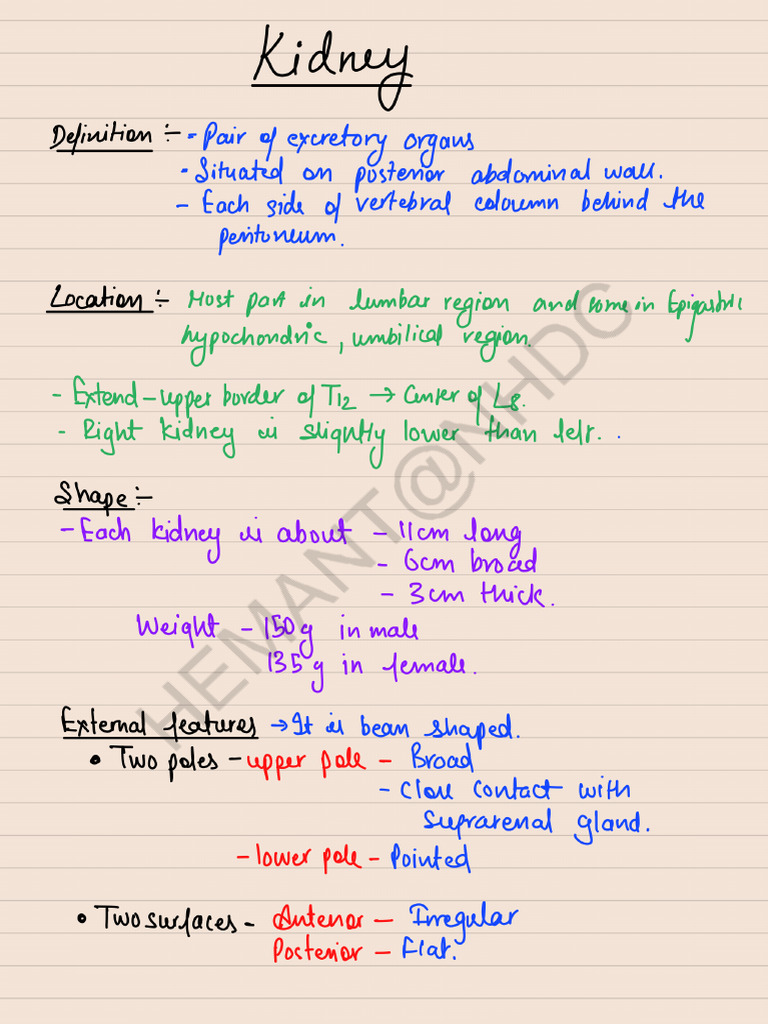 Kidney
Definition :- - Pair of excretory organs
- Situated on posterior abdominal wall.
- Each side of vertebral coloumn behind the
peritoneum.
Location :- Most part in lumbar region and some in Epigastric
hypochondric, umbilical region.
- Extend - upper border of T12 → Center of L8.
- Right kidney is slightly lower than left.
Shape :-
- Each kidney is about - 11cm long
- 6cm broad
- 3cm thick.
Weight - 150g in male
135g in female.
External features → It is bean shaped.
• Two poles - upper pole - Broad
- Close contact with
suprarenal gland.
- lower pole - Pointed
• Two surfaces - Anterior - Irregular
Posterior - Flat.
HEMANT@NHDC